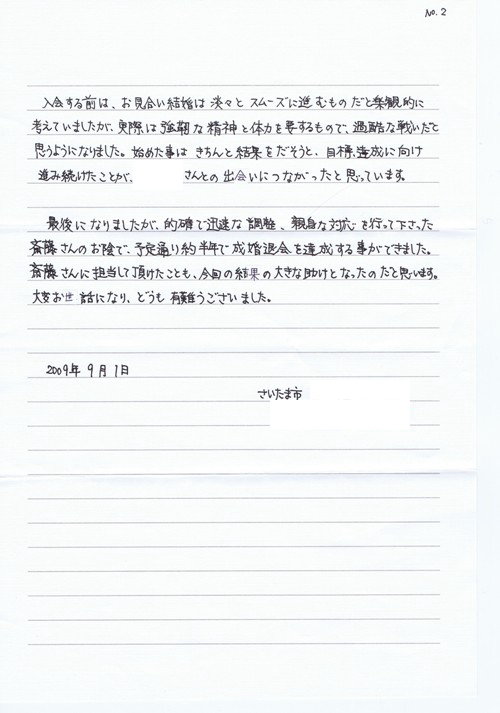 No. 2
入会する前は、お見合い結婚は淡々とスムーズに進むものだと楽観的に
考えていましたが、実際は強靭な精神と体力を要するもので、過酷な戦いだと
思うようになりました。始めた事はきちんと結果をだそうと、目標達成に向け
進み続けたことが、 さんとの出会いにつながったと思っています。
最後になりましたが、的確で迅速な調整、親身な対応を行って下さった
斎藤さんのお陰で、予定通り約半年で成婚退会を達成する事ができました。
斎藤さんに担当して頂けたことも、今回の結果の大きな助けとなったのだと思います。
大変お世話になり、どうも有難うございました。
2009年9月1日
さいたま市